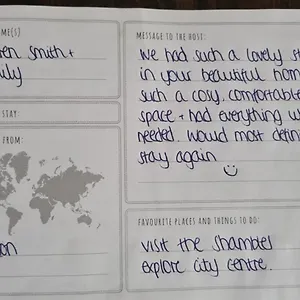 ME(S)
ren Smith +
ily
STAY:
FROM:
on
MESSAGE TO THE HOST:
We had such a lovely st
in your beautiful hom
such a cosy, comfortable
space + had everything w
needed. Would most defin
stay again
FAVOURITE PLACES AND THINGS TO DO:
visit the shambles
explore city centre.